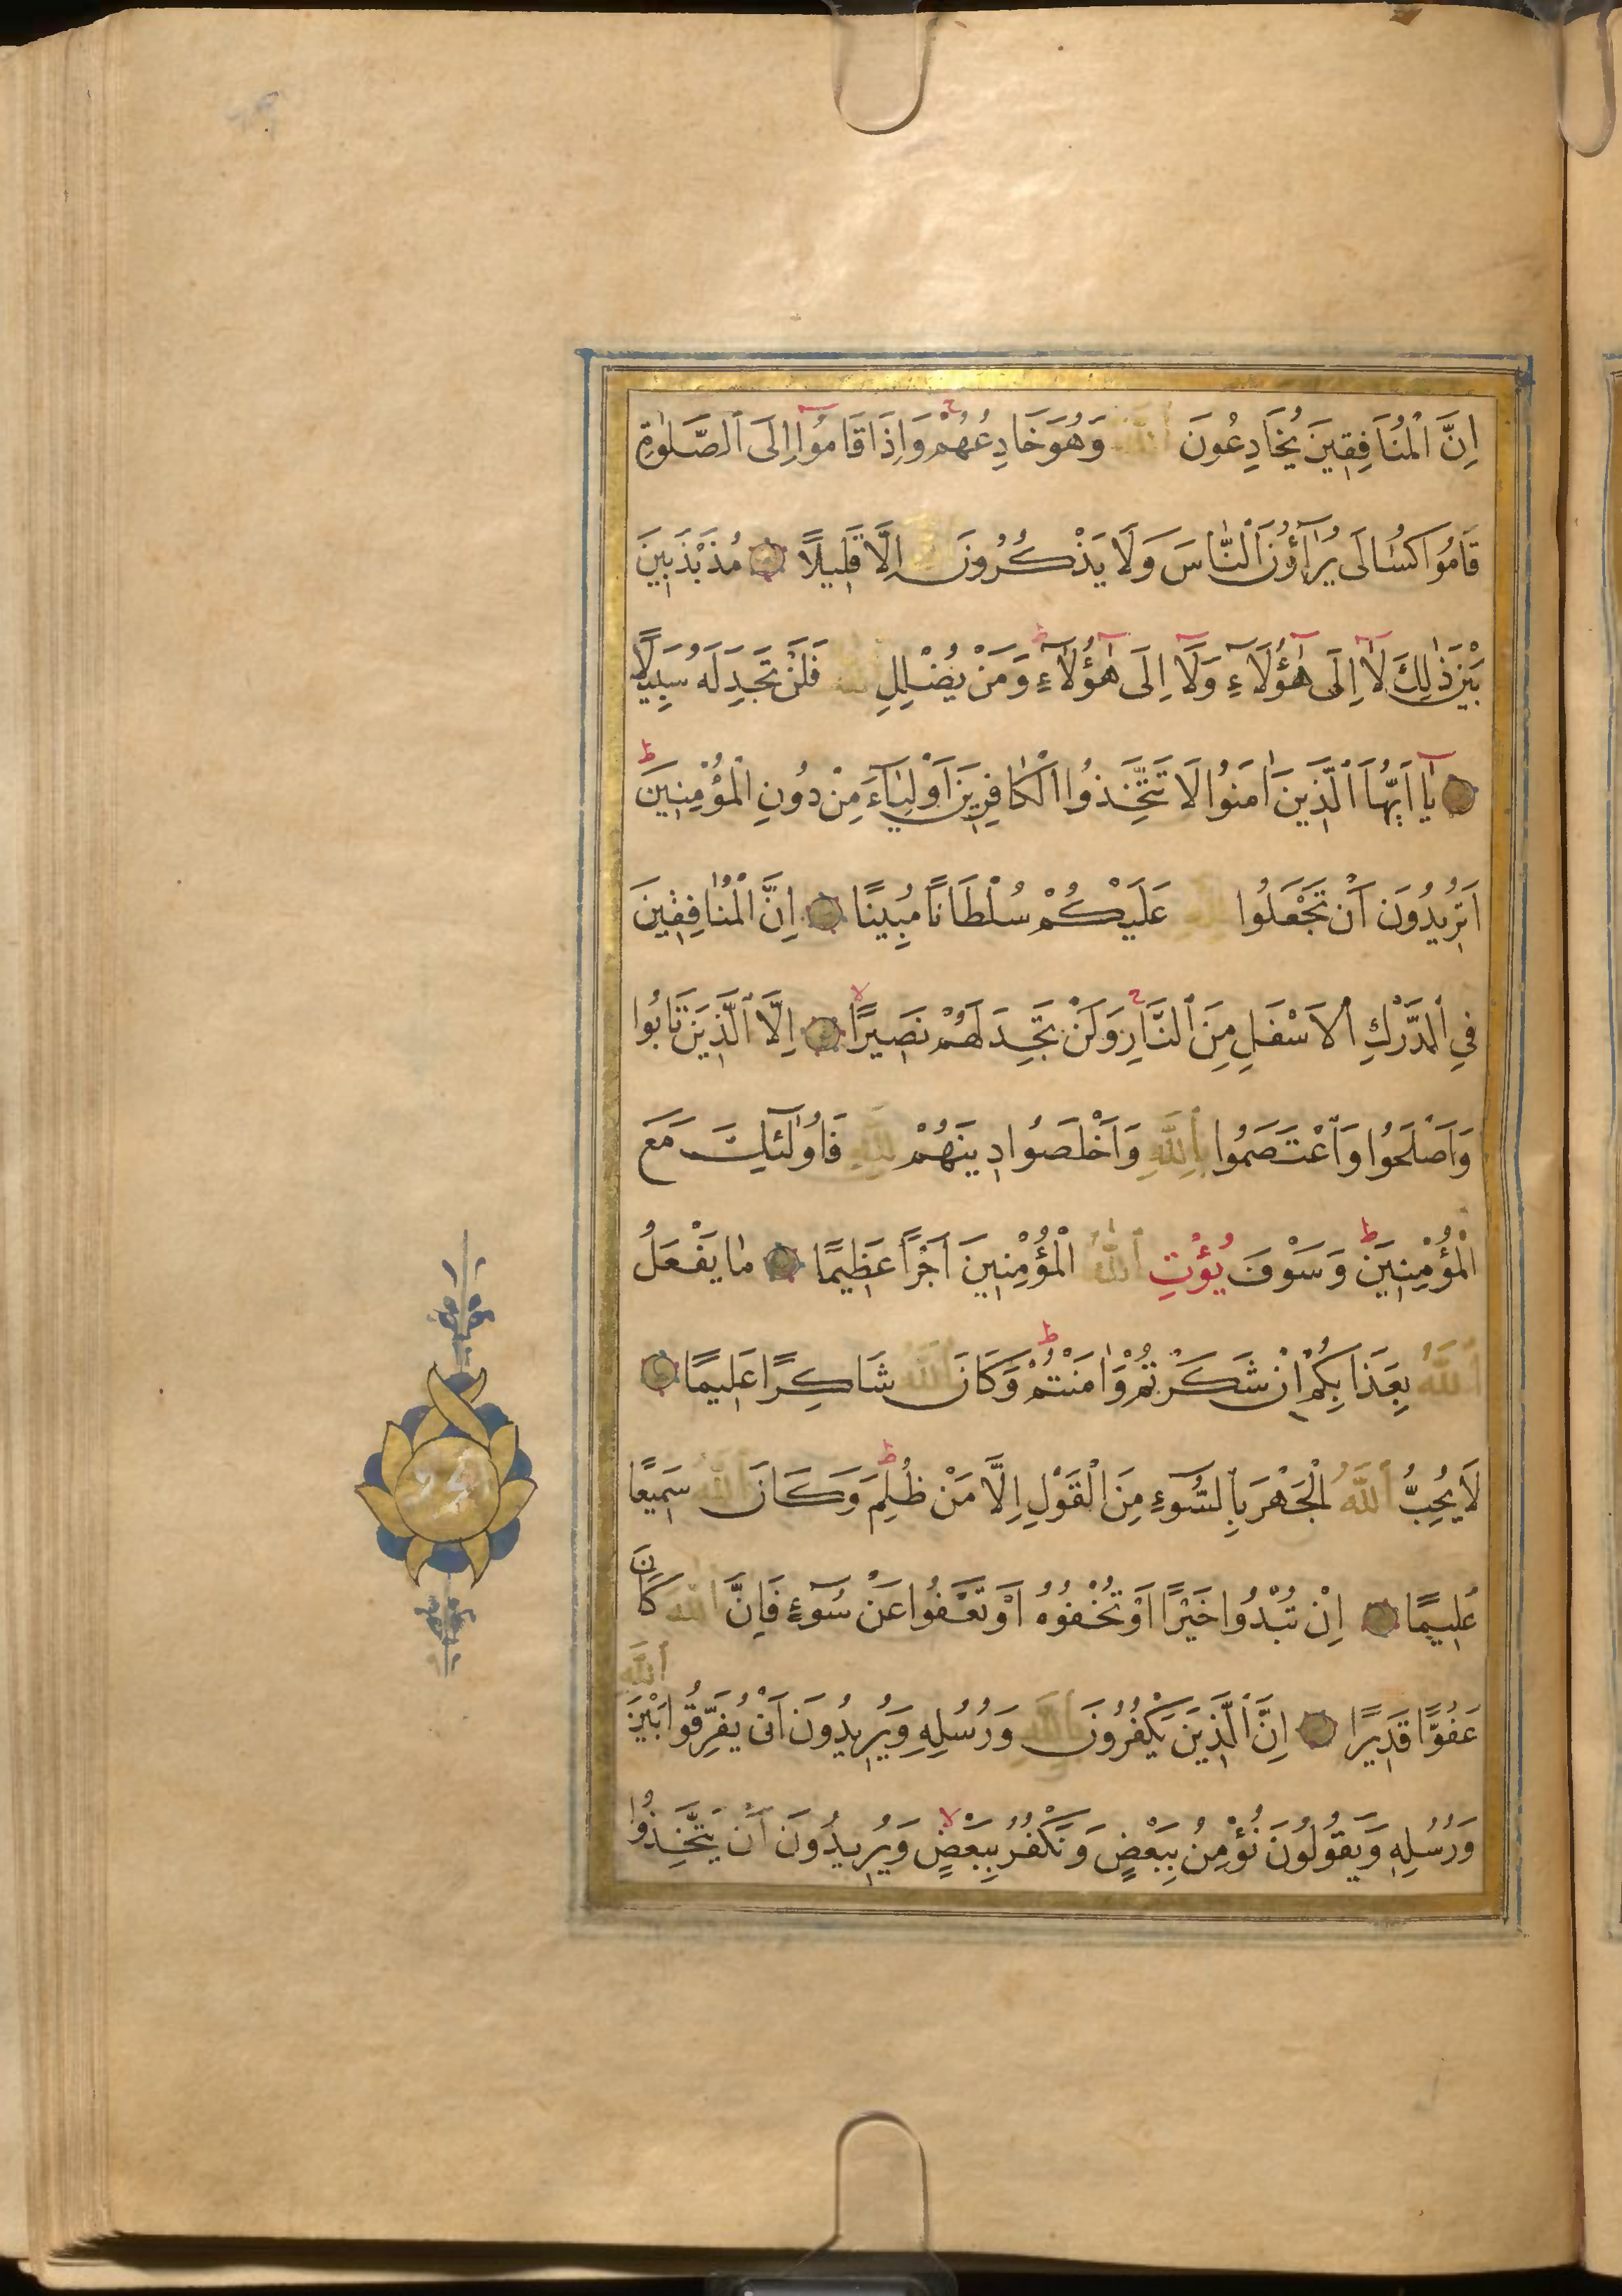 اِنَّ ٱلْمُنَافِقِينَ يُخَادِعُونَ ٱللّٰهَ وَهُوَ خَادِعُهُمْ وَاِذَا قَامُوٓا اِلَى ٱلصَّلٰوةِ
قَامُوا كُسَالٰى يُرَآؤُنَ ٱلنَّاسَ وَلَا يَذْكُرُونَ ٱللّٰهَ اِلَّا قَلِيلًا مُذَبْذَبِينَ
بَيْنَ ذٰلِكَ لَآ اِلٰى هٰٓؤُلَآءِ وَلَآ اِلٰى هٰٓؤُلَآءِ وَمَنْ يُضْلِلِ ٱللّٰهُ فَلَنْ تَجِدَ لَهُ سَبِيلًا
يَآ اَيُّهَا ٱلَّذِينَ اٰمَنُوا لَا تَتَّخِذُوا ٱلْكَافِرِينَ اَوْلِيَآءَ مِنْ دُونِ ٱلْمُؤْمِنِينَ
اَتُرِيدُونَ اَنْ تَجْعَلُوا لِلّٰهِ عَلَيْكُمْ سُلْطَانًا مُبِينًا اِنَّ ٱلْمُنَافِقِينَ
فِي ٱلدَّرْكِ ٱلْاَسْفَلِ مِنَ ٱلنَّارِ وَلَنْ تَجِدَ لَهُمْ نَصِيرًا اِلَّا ٱلَّذِينَ تَابُوا
وَاَصْلَحُوا وَٱعْتَصَمُوا بِٱللّٰهِ وَاَخْلَصُوا دِينَهُمْ لِلّٰهِ فَاُولٰٓئِكَ مَعَ
ٱلْمُؤْمِنِينَ وَسَوْفَ يُؤْتِ ٱللّٰهُ ٱلْمُؤْمِنِينَ اَجْرًا عَظِيمًا مَا يَفْعَلُ
ٱللّٰهُ بِعَذَابِكُمْ اِنْ شَكَرْتُمْ وَاٰمَنْتُمْ وَكَانَ ٱللّٰهُ شَاكِرًا عَلِيمًا
لَا يُحِبُّ ٱللّٰهُ ٱلْجَهْرَ بِٱلسُّوٓءِ مِنَ ٱلْقَوْلِ اِلَّا مَنْ ظُلِمَ وَكَانَ ٱللّٰهُ سَمِيعًا
عَلِيمًا اِنْ تُبْدُوا خَيْرًا اَوْ تُخْفُوهُ اَوْ تَعْفُوا عَنْ سُوٓءٍ فَاِنَّ ٱللّٰهَ كَانَ
عَفُوًّا قَدِيرًا اِنَّ ٱلَّذِينَ يَكْفُرُونَ بِٱللّٰهِ وَرُسُلِهِ وَيُرِيدُونَ اَنْ يُفَرِّقُوا بَيْنَ ٱللّٰهِ
وَرُسُلِهِ وَيَقُولُونَ نُؤْمِنُ بِبَعْضٍ وَنَكْفُرُ بِبَعْضٍ وَيُرِيدُونَ اَنْ يَتَّخِذُوا